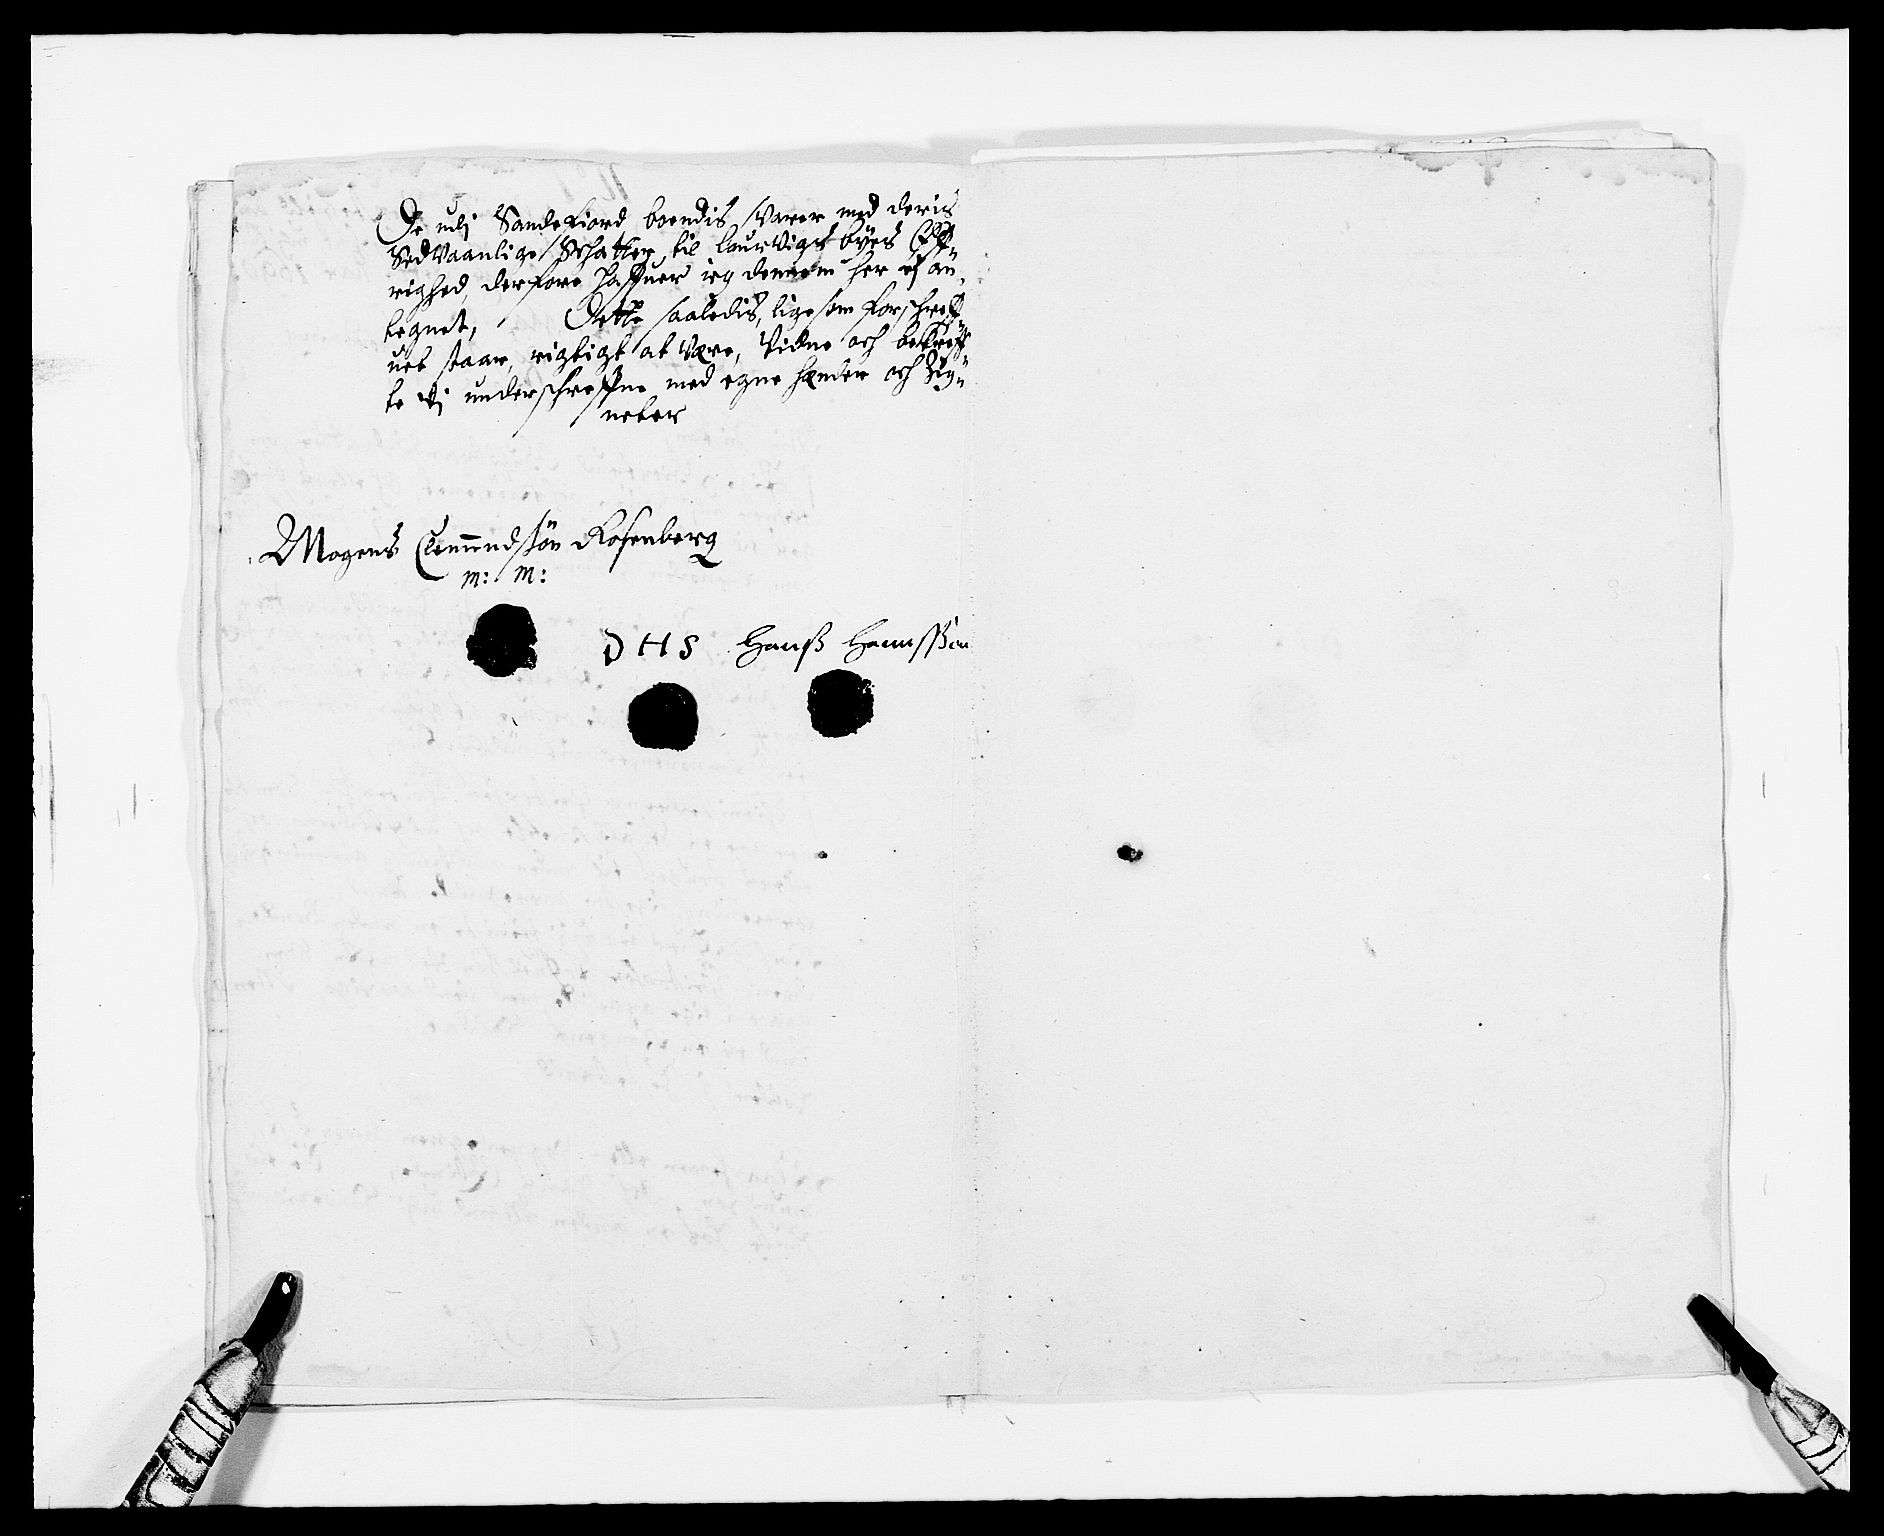 De udj Sandefiord boendis svarer med deris
Sedvaanlige Schatter til laurvigs byes Øff-
righed, derfore haffuer ieg dennem her ej an-
tegnet, Dette saaledis, lige som forschreff-
uet staar, rigtigt at være, Vidne och bekreff-
te Vj underschreffne med egne hænder och Zig-
neter
Mogens Clemendsøn Rosenberg
m: m:
D H S Hanß Hansßøn